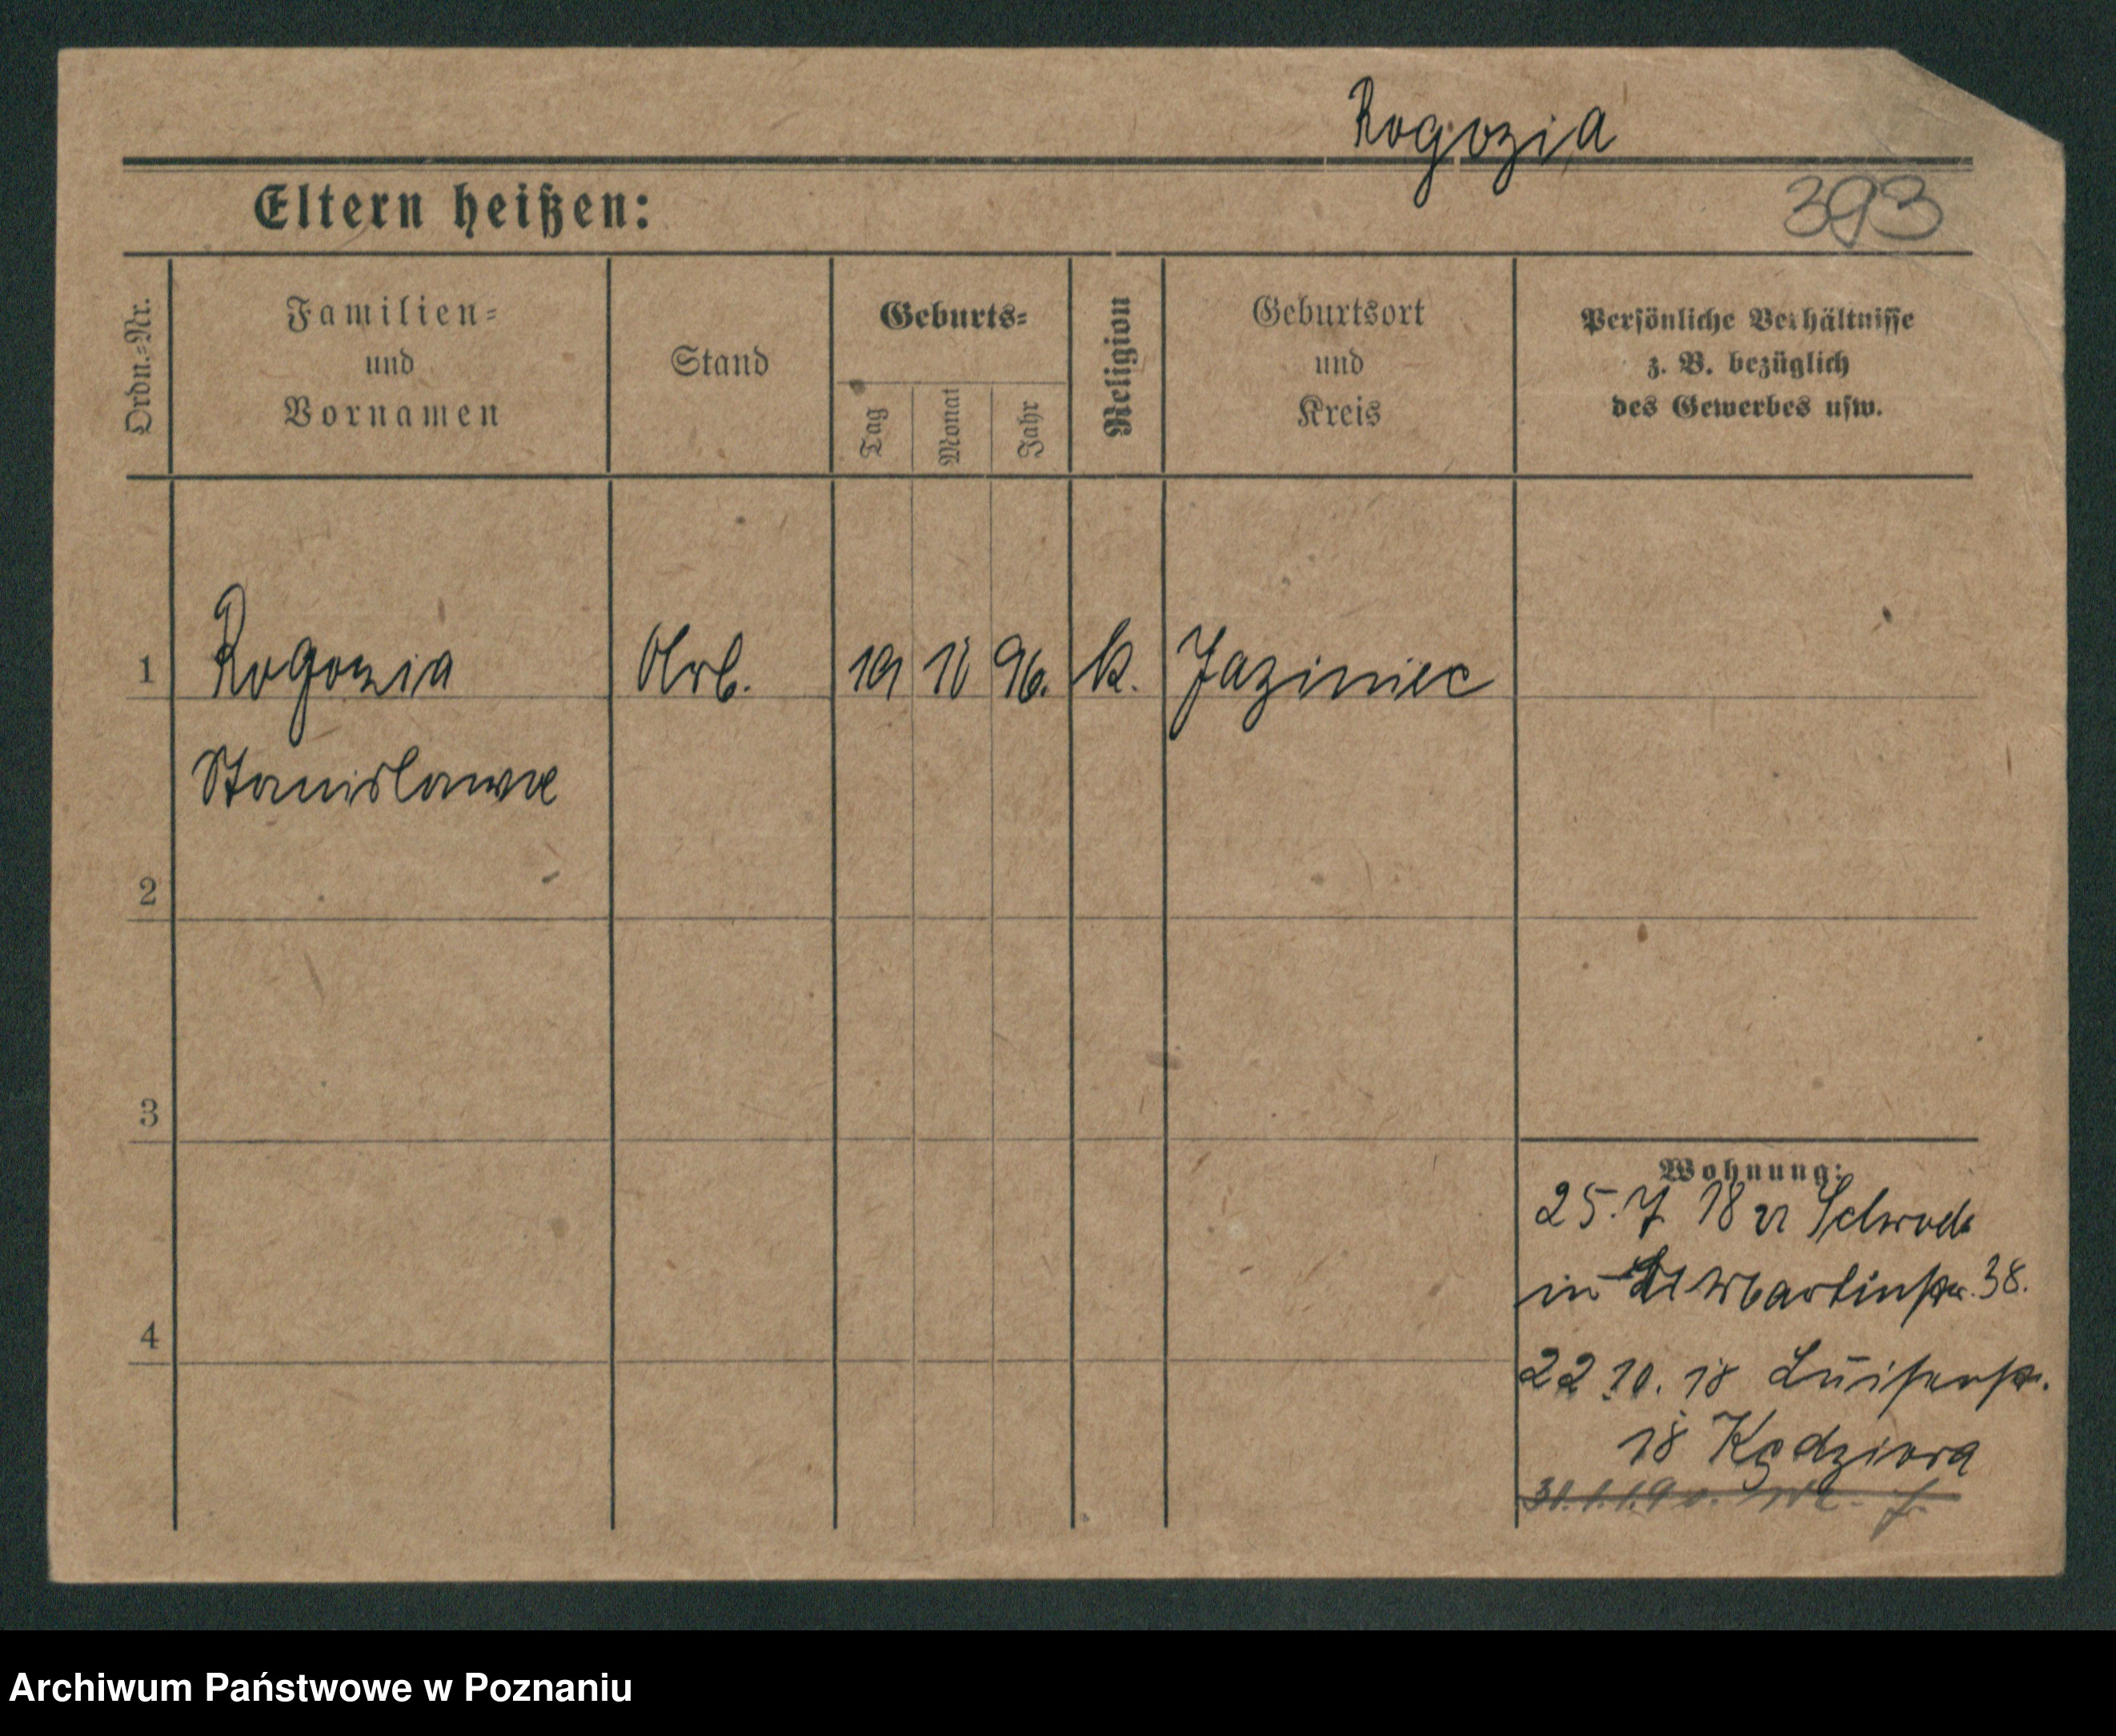 Rogozia
393
Eltern heißen:
Ordn.=Nr.
Familien=
und
Vornamen
Stand
Geburts=
Tag
Monat
Jahr
Religion
Geburtsort
und
Kreis
Persönliche Verhältnisse
z. B. bezüglich
des Gewerbes usw.
1 Rogozia Arb. 19 10 96. k. Jaziniec
Stanislawa
2
3
4
Wohnung:
25. 7 18 Schroda
in St Martinstr. 38.
22 10. 18 Luisenstr.
18 Kędziora
Archiwum Państwowe w Poznaniu